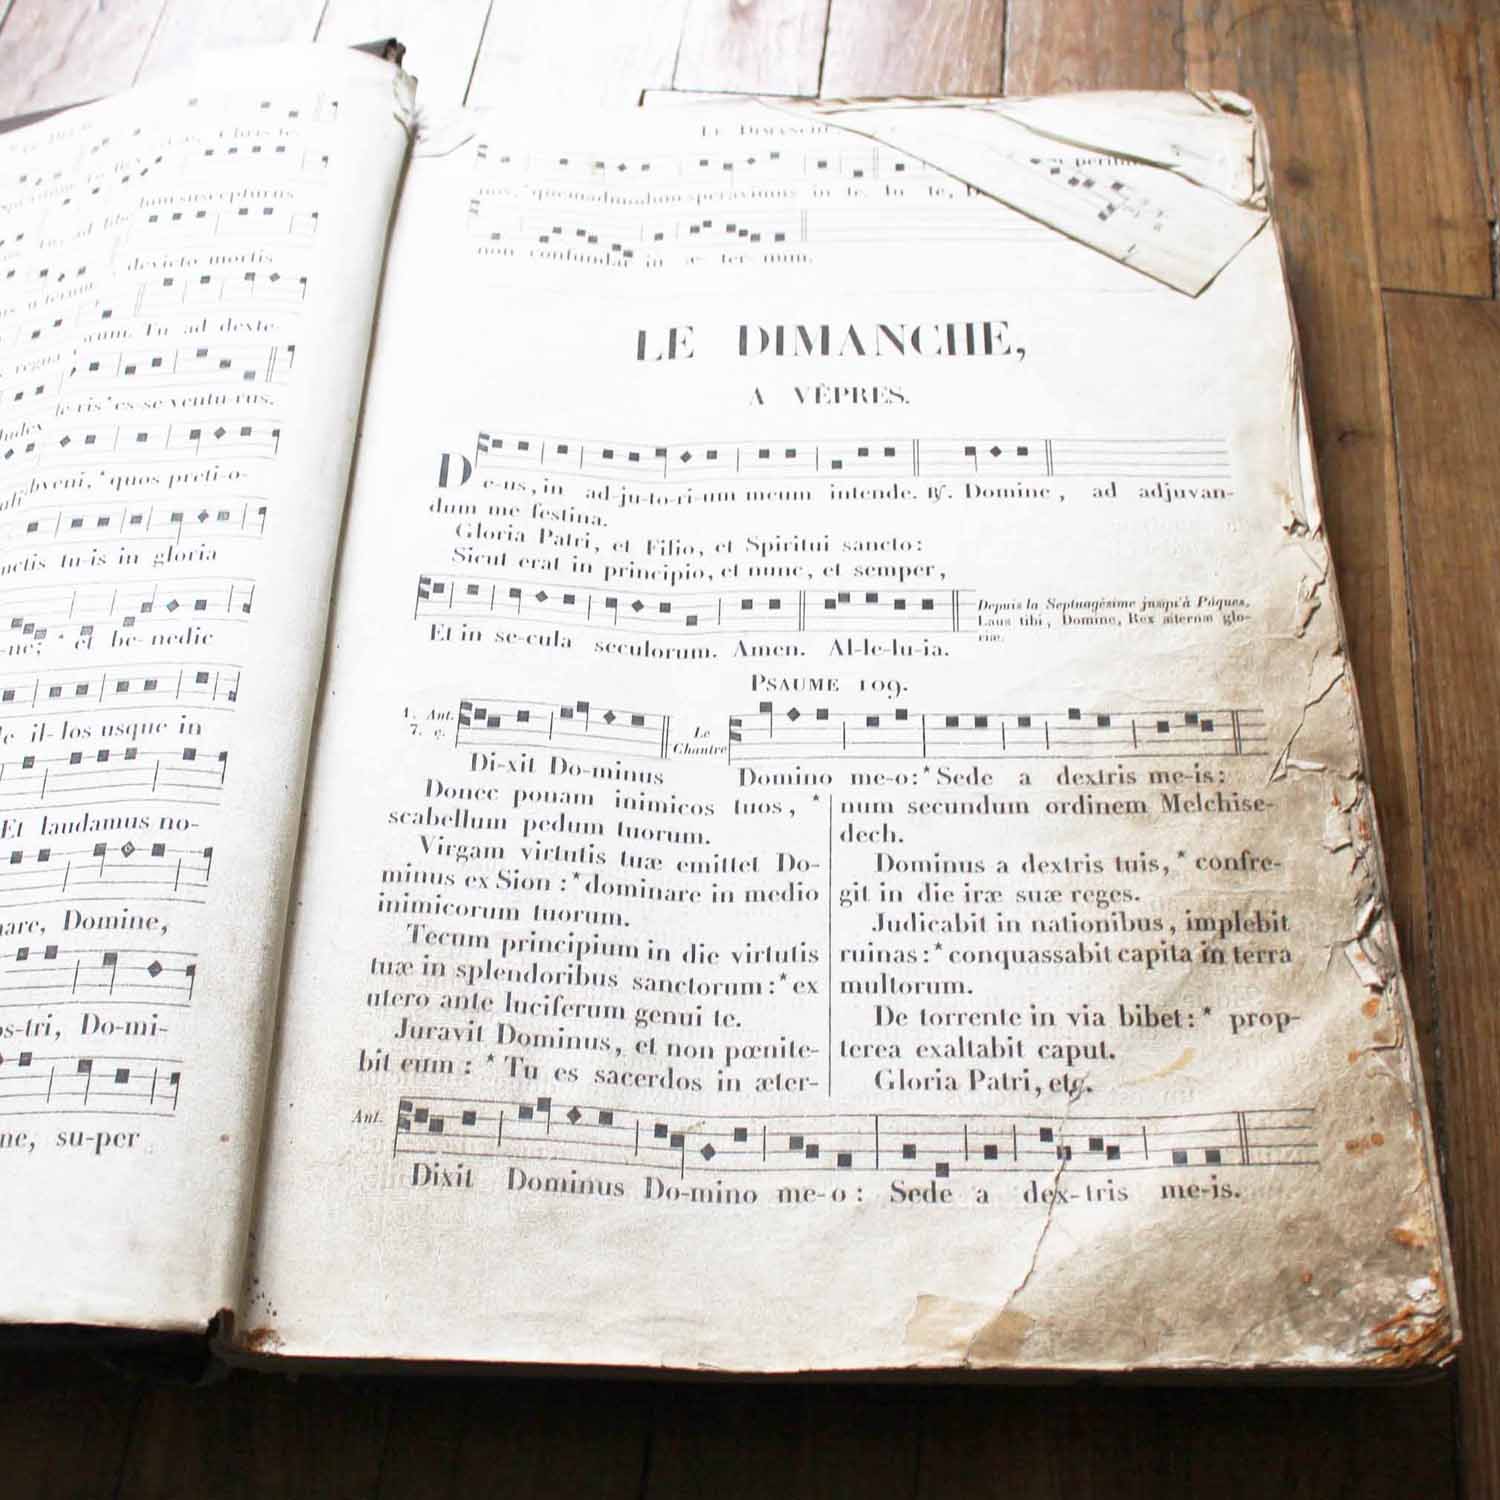 Chris te,
hom suscepturus
devicto mortis
num. Tu ad dexte-
regna
te-ris es-se ventu-rus.
Judex
bveni, * quos preti-o-
nctis tu-is in gloria
-ne; * et be-nedic
le il-los usque in
Et laudamus no-
nare, Domine,
os-tri, Do-mi-
ne, su-per
LE DIMANCHE
nos, * quemadmodum speravimus in te. In te,
non confundar in æ ter num.
LE DIMANCHE,
A VÊPRES.
De-us, in ad-ju-to-ri-um meum intende. ℟. Domine, ad adjuvan-
dum me festina.
Gloria Patri, et Filio, et Spiritui sancto:
Sicut erat in principio, et nunc, et semper,
Depuis la Septuagésime jusqu'à Pâques,
Laus tibi, Domine, Rex æternæ glo-
riæ.
Et in se-cula seculorum. Amen. Al-le-lu-ia.
PSAUME 109.
1. Ant.
7. ç.
Le
Chantre
Di-xit Do-minus Domino me-o: * Sede a dextris me-is:
Donec ponam inimicos tuos, *
scabellum pedum tuorum.
Virgam virtutis tuæ emittet Do-
minus ex Sion : * dominare in medio
inimicorum tuorum.
Tecum principium in die virtutis
tuæ in splendoribus sanctorum : * ex
utero ante luciferum genui te.
Juravit Dominus, et non pœnite-
bit eum : * Tu es sacerdos in æter-
num secundum ordinem Melchise-
dech.
Dominus a dextris tuis, * confre-
git in die iræ suæ reges.
Judicabit in nationibus, implebit
ruinas : * conquassabit capita in terra
multorum.
De torrente in via bibet : * prop-
terea exaltabit caput.
Gloria Patri, etc.
Ant.
Dixit Dominus Do-mino me-o : Sede a dex-tris me-is.